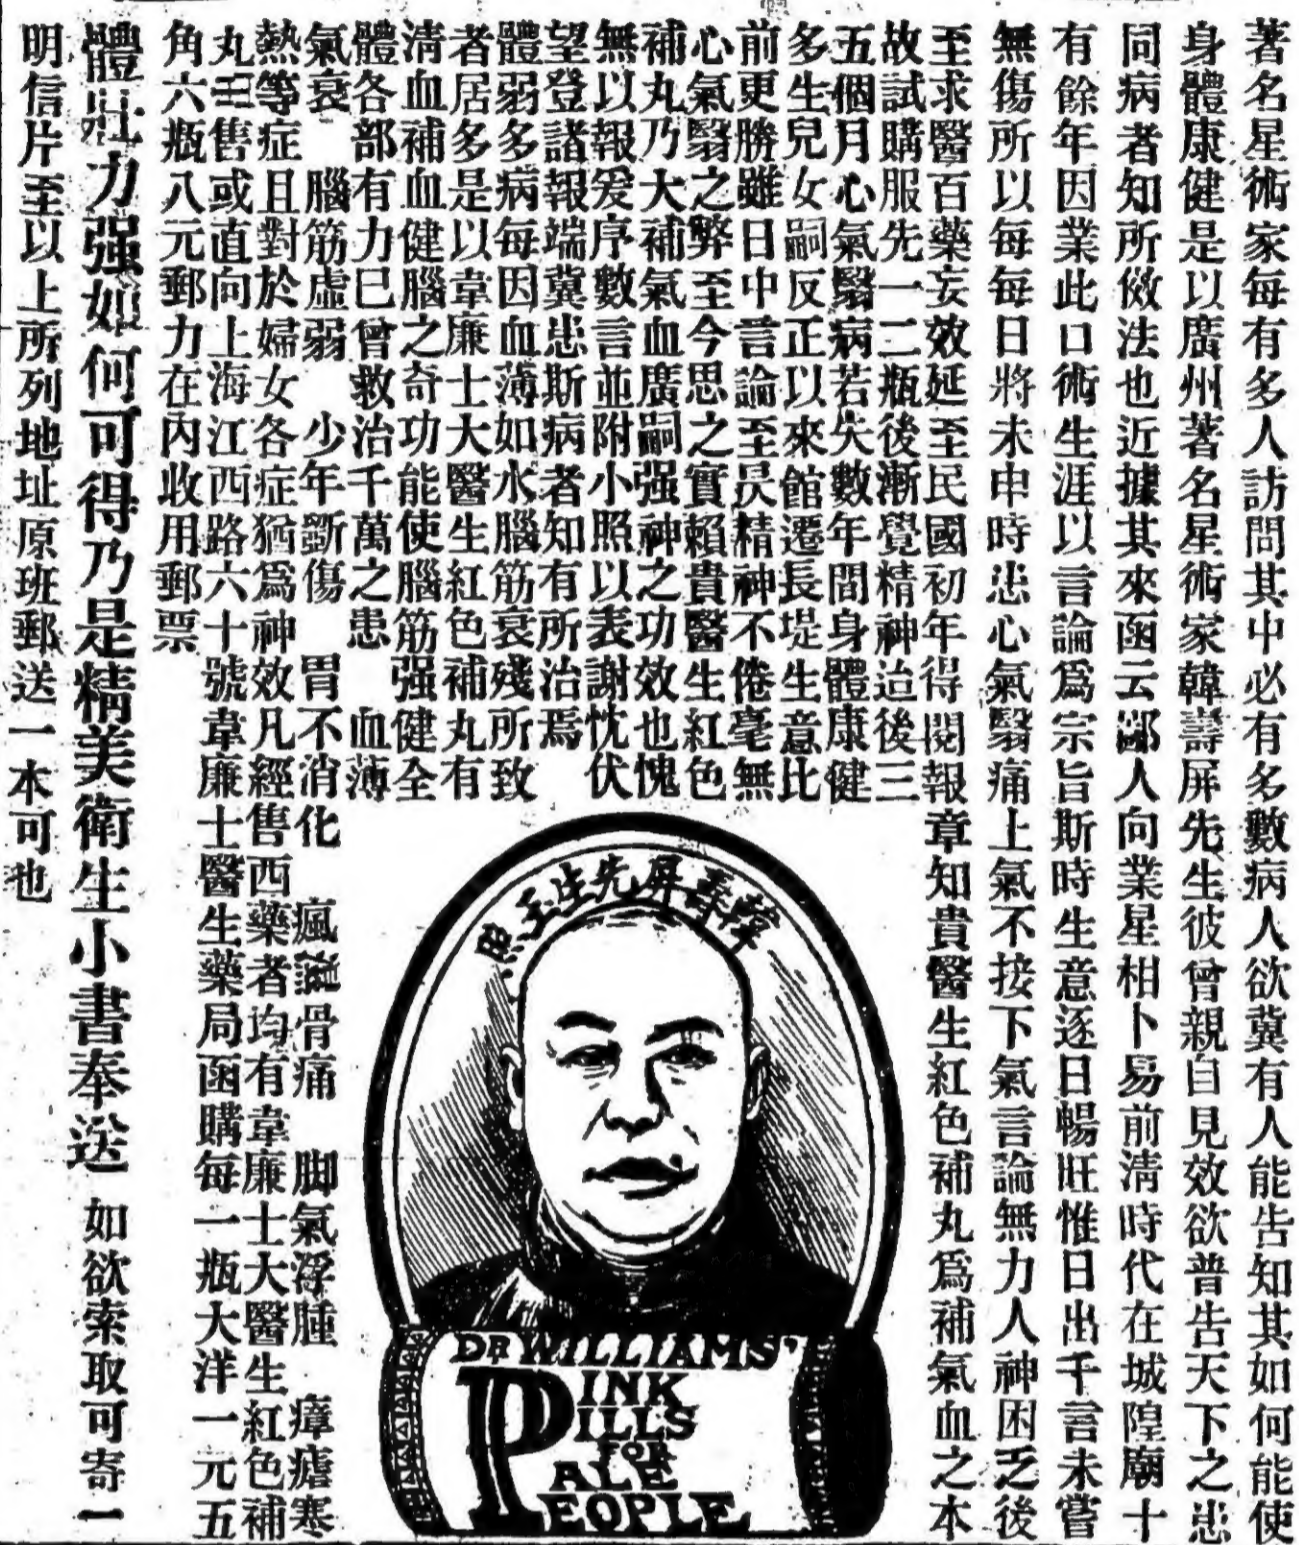 著名星術家每有多人訪問其中必有多數病人欲冀有人能告知其如何能使
身體康健是以廣州著名星術家韓壽屏先生彼曾親自見效欲普告天下之患
同病者知所倣法也近據其來函云鄙人向業星相卜易前清時代在城隍廟十
有餘年因業此口術生涯以言論爲宗旨斯時生意逐日暢旺惟日出千言未嘗
無傷所以每每日將未申時患心氣翳痛上氣不接下氣言論無力人神困乏後
至求醫百藥妄效延至民國初年得閱報章知貴醫生紅色補丸爲補氣血之本
故試購服先一二瓶後漸覺精神迨後三
五個月心氣翳病若失數年間身體康健
多生兒女嗣反正以來館遷長堤生意比
前更勝雖日中言論至昃精神不倦毫無
心氣翳之弊至今思之實賴貴醫生紅色
補丸乃大補氣血廣嗣强神之功效也愧
無以報爰序數言並附小照以表謝忱伏
望登諸報端冀患斯病者知有所治焉
體弱多病每因血薄如水腦筋衰殘所致
者居多是以韋廉士大醫生紅色補丸有
清血補血健腦之奇功能使腦筋强健全
體各部有力已曾救治千萬之患 血薄
氣衰 腦筋虛弱 少年斲傷 胃不消化 瘋濕骨痛 脚氣浮腫 瘴瘧寒
熱等症且對於婦女各症猶爲神效凡經售西藥者均有韋廉士大醫生紅色補
丸出售或直向上海江西路六十號韋廉士醫生藥局函購每一瓶大洋一元五
角六瓶八元郵力在內收用郵票
體壯力强如何可得乃是精美衛生小書奉送 如欲索取可寄一
明信片至以上所列地址原班郵送一本可也
韓壽屏先生玉照
DR WILLIAMS'
PINK
PILLS
FOR
PALE
PEOPLE